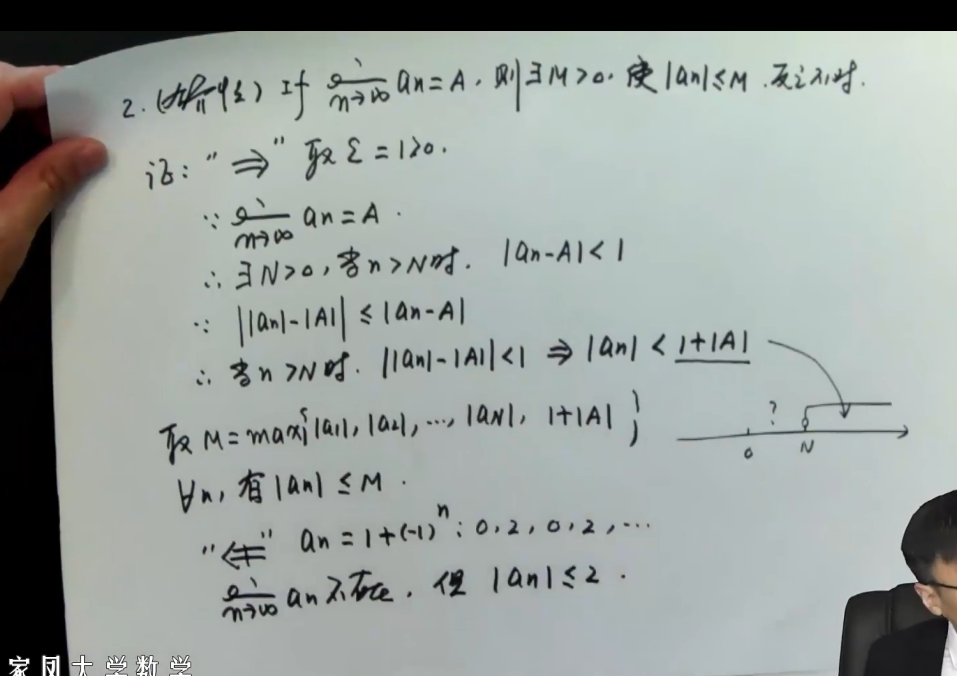 2. (有界性) If lim n→∞ an = A, 则∃M>0, 使|an|≤M. 反之不对.
证: "⇒" 取 ε=1>0.
∵ lim n→∞ an = A.
∴ ∃N>0, 当n>N时, |an-A|<1
∵ ||an|-|A|| ≤ |an-A|
∴ 当n>N时, ||an|-|A||<1 ⇒ |an| < 1+|A|
取M=max{|a1|, |a2|, …, |aN|, 1+|A|}
? 0 N
∀n, 有|an|≤M.
"⇍" an=1+(-1)^n: 0, 2, 0, 2, …
lim n→∞ an不存在, 但|an|≤2.
家凤大学数学